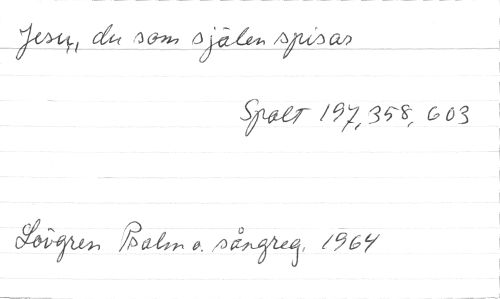 Jesu, du som själen spisar
Spalt 197, 358, 603
Lövgren Psalm o. sångreg. 1964